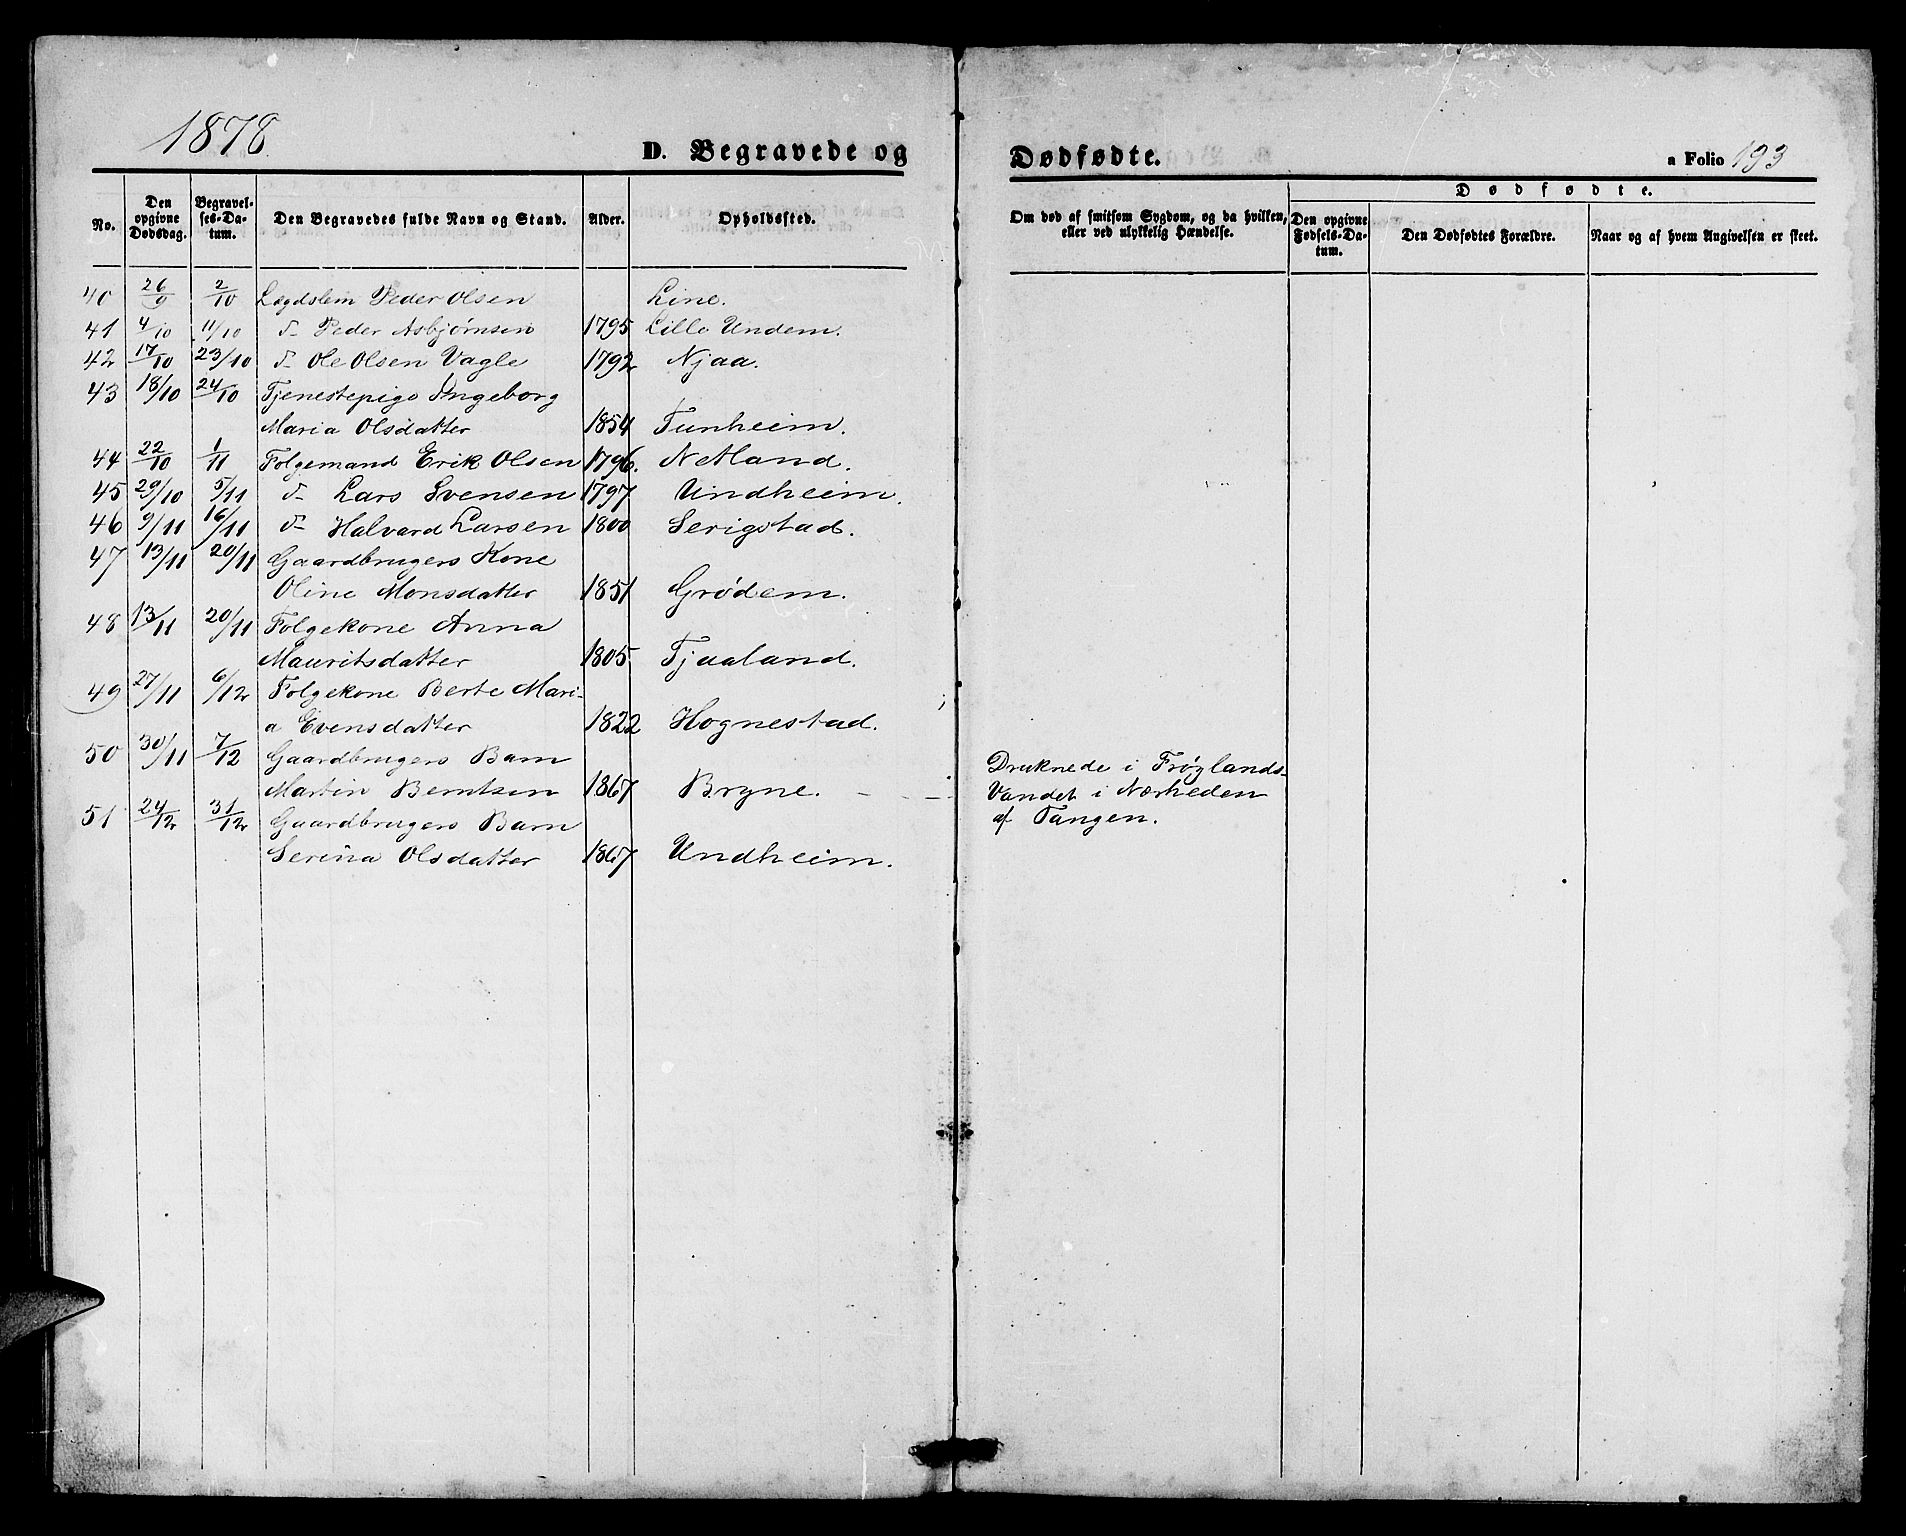 1878 D. Begravede og Dødfødte. a Folio 193
No. Den opgivne Dødsdag. Begravelses-Datum. Den Begravedes fulde Navn og Stand. Alder. Opholdssted. Om død af smitsom Sygdom, og da hvilken, eller ved ulykkelig Hændelse. Dødfødte. Den opgivne Fødsels-Datum. Den Dødfødtes Forældre. Naar og af hvem Angivelsen er skeet.
40 26/9 2/10 Lægdslem Peder Olsen Line.
41 4/10 11/10 d- Peder Asbjørnsen 1795 Lille Undem.
42 17/10 23/10 d- Ole Olsen Vagle 1792 Njaa.
43 18/10 24/10 Tjenestepige Ingeborg
Maria Olsdatter 1854 Tunheim.
44 22/10 1/11 Folgemand Erik Olsen 1796. Netland.
45 29/10 5/11 d- Lars Svensen 1797 Undheim.
46 9/11 16/11 d- Halvard Larsen 1800 Serigstad.
47 13/11 20/11 Gaardbrugers Kone
Oline Monsdatter 1851 Grødem.
48 13/11 20/11 Folgekone Anna
Mauritsdatter 1805 Tjaaland.
49 27/11 6/12 Folgekone Berte Mari-
a Evensdatter 1822 Hognestad.
50 30/11 7/12 Gaardbrugers Barn
Martin Berntsen 1867 Bryne. - - Druknede i Frøylands-
Vandet i Nærheden
af Tangen.
51 24/12 31/12 Gaardbrugers Barn
Serina Olsdatter 1867 Undheim.